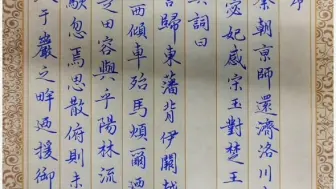 余朝京師還濟洛川
宓妃感宋玉對楚王
詞曰
歸東藩背伊闕越
西傾車殆馬煩爾迺
田容與乎陽林流
駭忽焉思散俯則未
于巖之畔迺援御